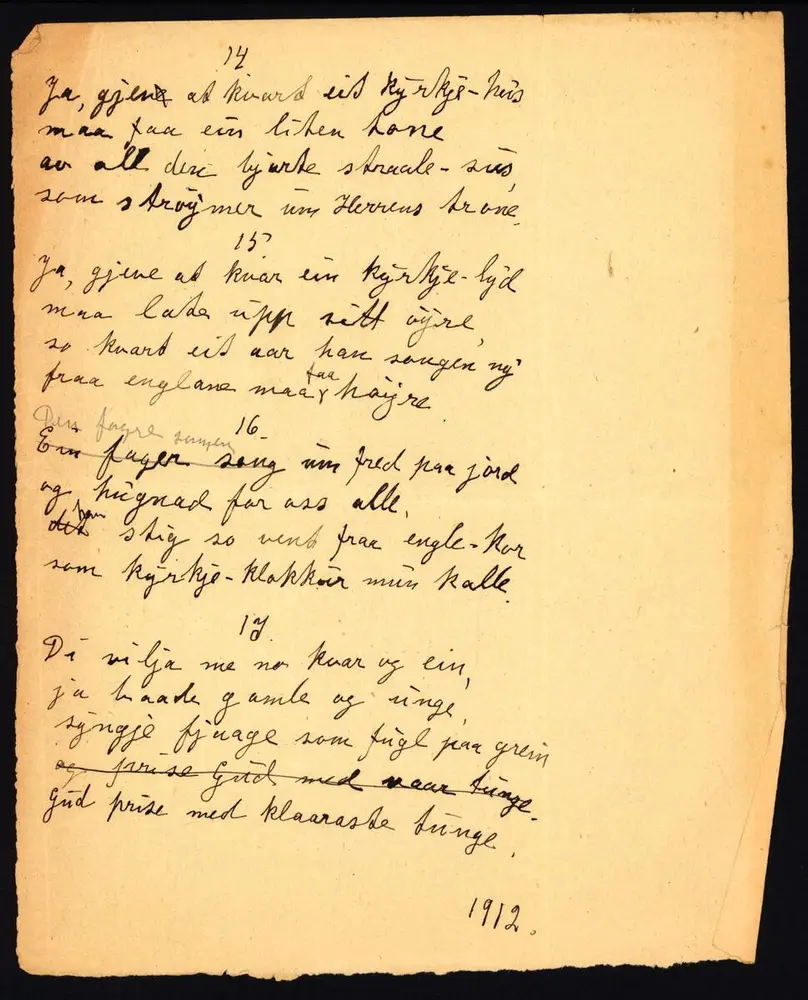 14
Ja, gjeve at kvart eit kyrkje-hus
maa faa ein liten tone
av all den bjarte straale-sus,
som ströymer um Herrens trone.
15
Ja, gjeve at kvar ein kyrkje-lyd
maa lata upp sitt öyre,
so kvart eit aar han songen ny
fraa englane maa faa höyre.
Den fagre songen
16.
Ein fager song um fred paa jord
og hugnad for oss alle,
det han stig so vent fraa engle-kor
som kyrkje-klokkur mun kalle.
17
Di vilja me no kvar og ein,
ja baade gamle og unge,
syngje fjaage som fugl paa grein
og prise Gud med vaar tunge.
Gud prise med klaaraste tunge.
1912.